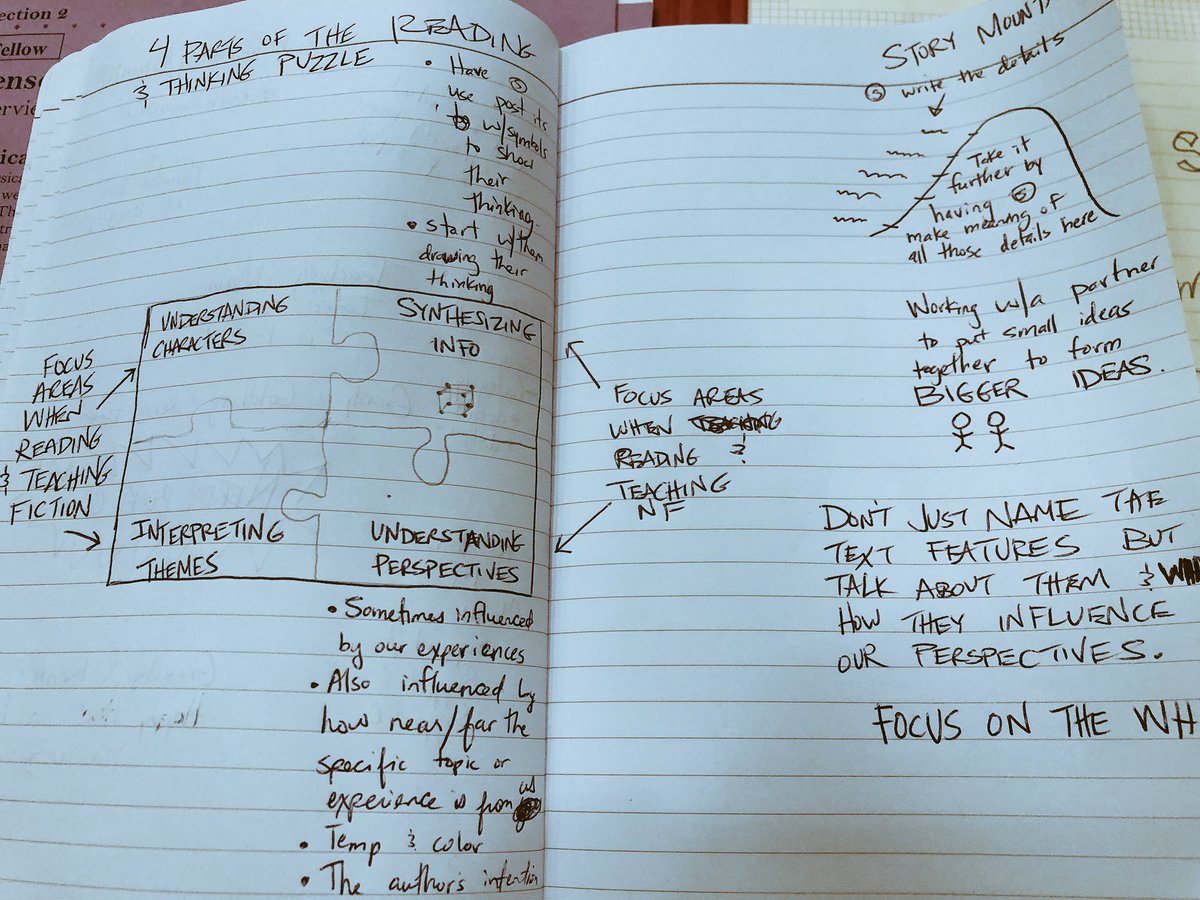 ection 2
Fellow
4 PARTS OF THE READING
& THINKING PUZZLE
• Have Ⓢ
use post its
w/symbols
to show
their
thinking.
• start w/them
drawing their
thinking
UNDERSTANDING
CHARACTERS
SYNTHESIZING
INFO
FOCUS
AREAS
WHEN
READING
& TEACHING
FICTION
INTERPRETING
THEMES
UNDERSTANDING
PERSPECTIVES
FOCUS AREAS
WHEN TEACHING
READING &
TEACHING
NF
• Sometimes influenced
by our experiences
• Also influenced by
how near/far the
specific topic or
experience is from us
• Temp & color
• The author's intention
STORY MOUNT
Ⓢ write the details
Take it
further by
having Ⓢ
make meaning of
all those details here
Working w/a partner
to put small ideas
together to form
BIGGER IDEAS.
DON'T JUST NAME THE
TEXT FEATURES BUT
TALK ABOUT THEM &
HOW THEY INFLUENCE
OUR PERSPECTIVES.
FOCUS ON THE WH